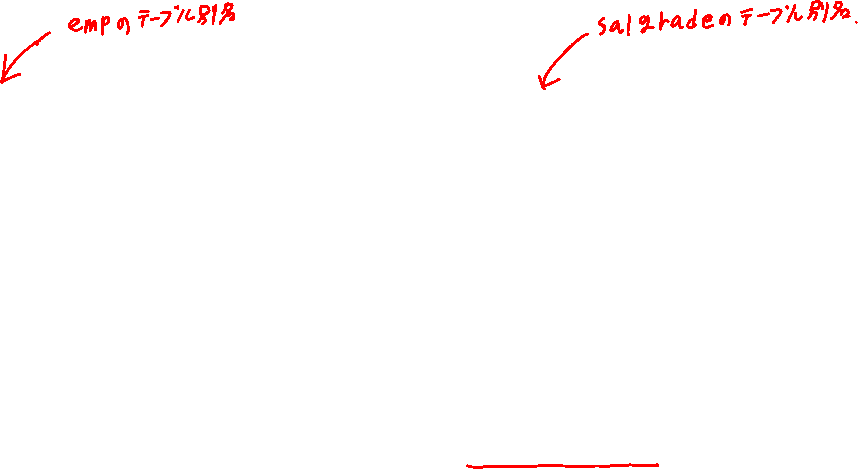 empのテーブル別名
salgradeのテーブル別名.